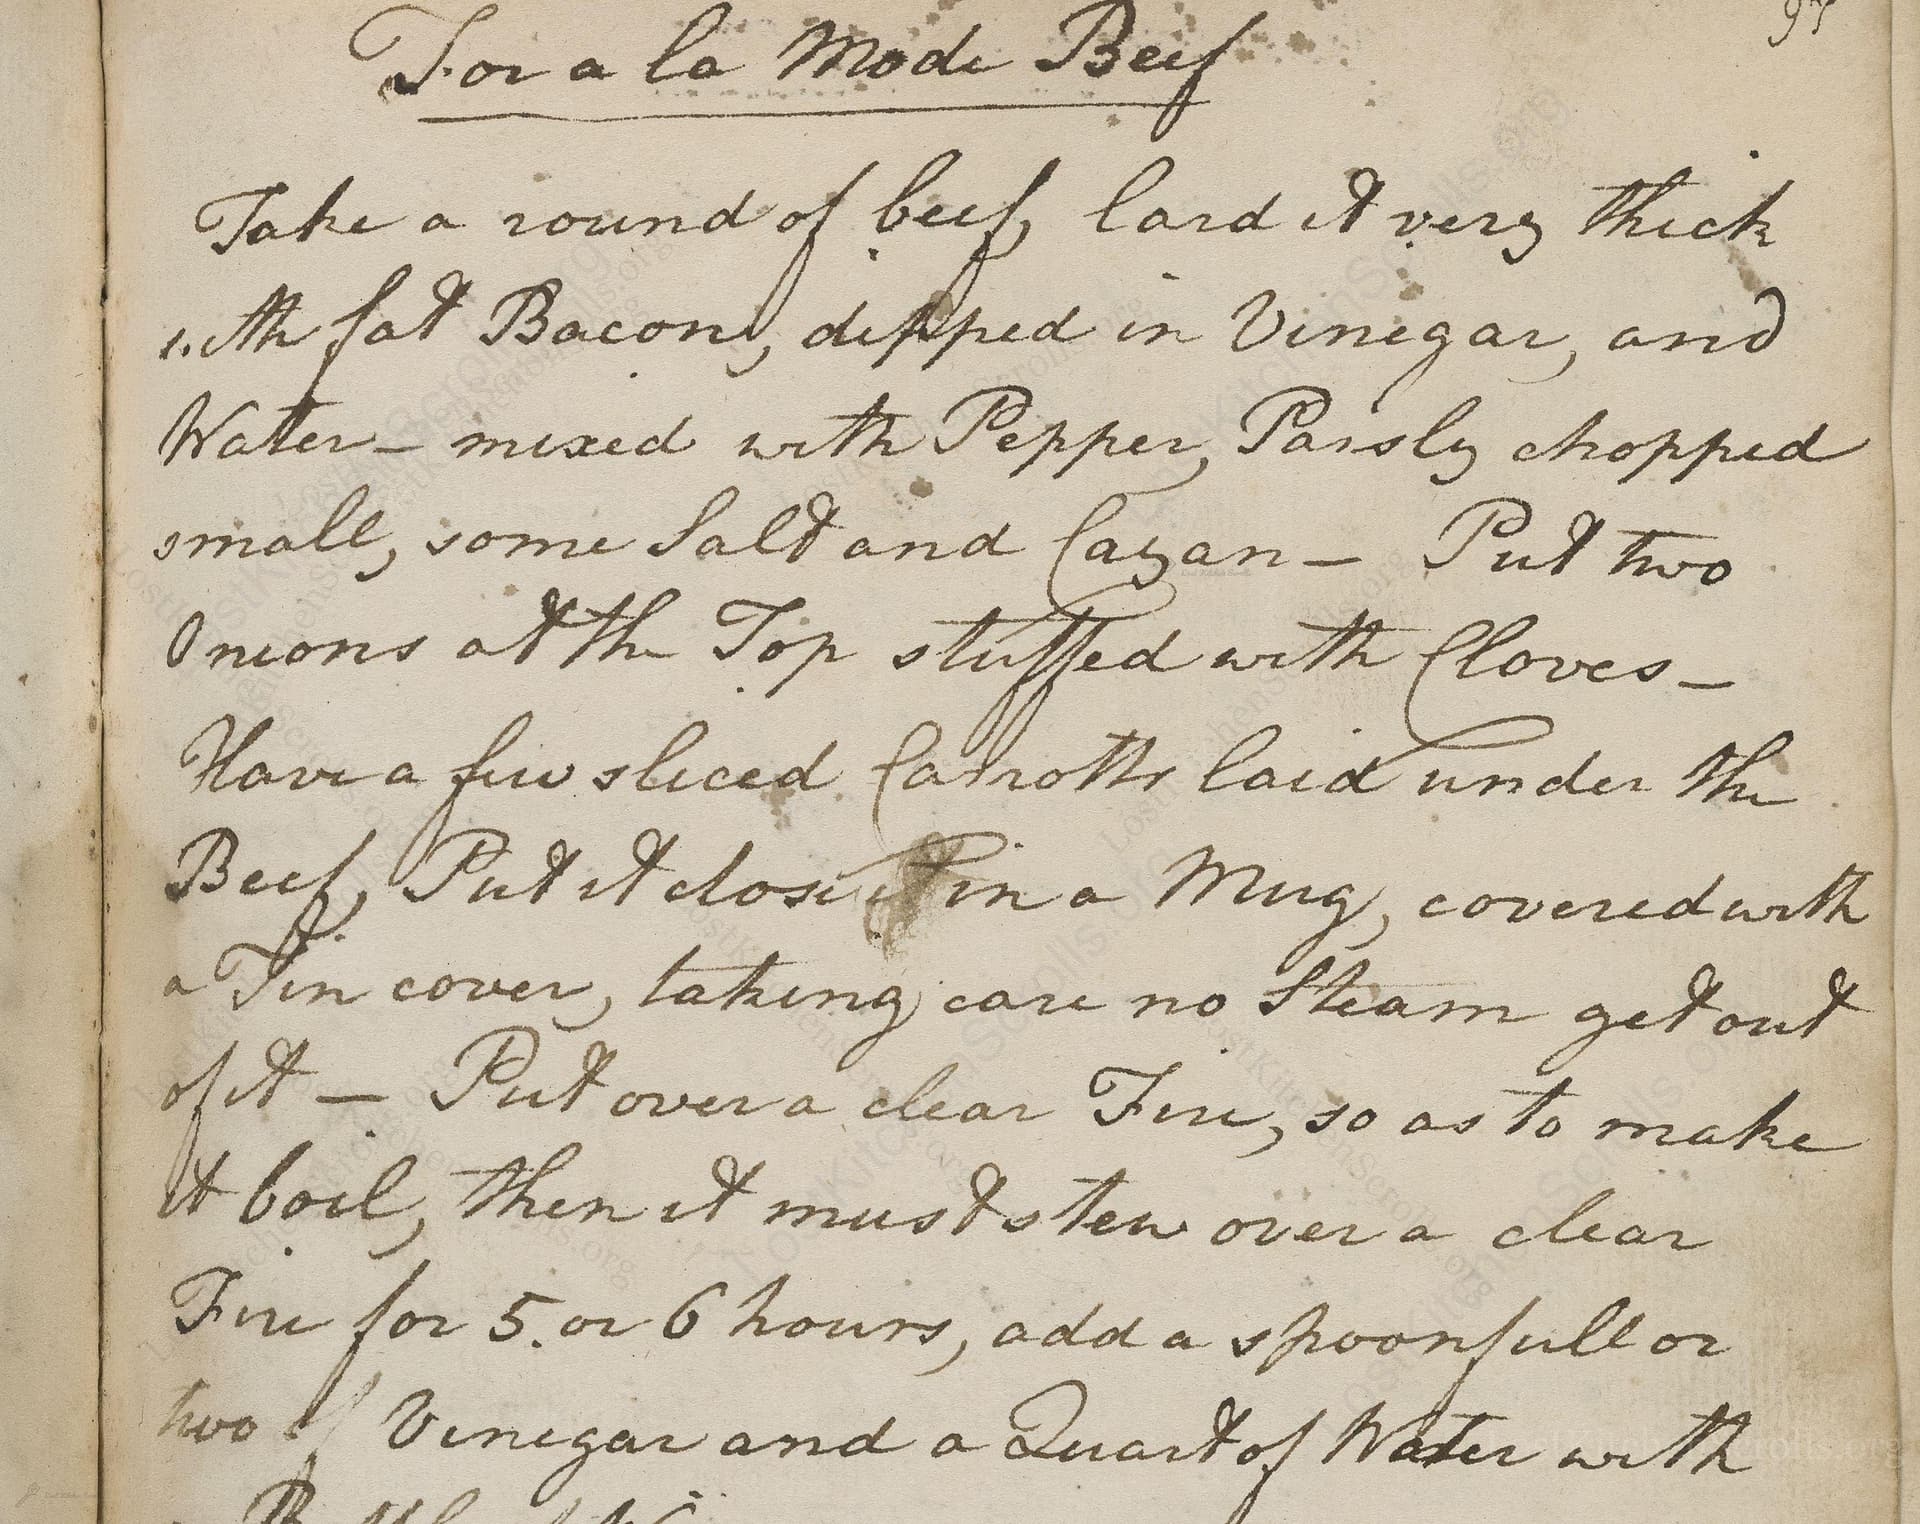 For a la Mode Beef
Take a round of beef, lard it very thick
with fat Bacon, dipped in Vinegar, and
Water – mixed with Pepper, Parsly chopped
small, some Salt and Cayan – Put two
Onions at the Top stuffed with Cloves –
Have a few sliced Carrotts laid under the
Beef, Put it close it in a Mug, covered with
a Tin cover, taking care no Steam get out
of it – Put over a clear Fire, so as to make
it boil, then it must stew over a clear
Fire for 5 or 6 hours, add a spoonfull or
two of Vinegar and a Quart of Water with